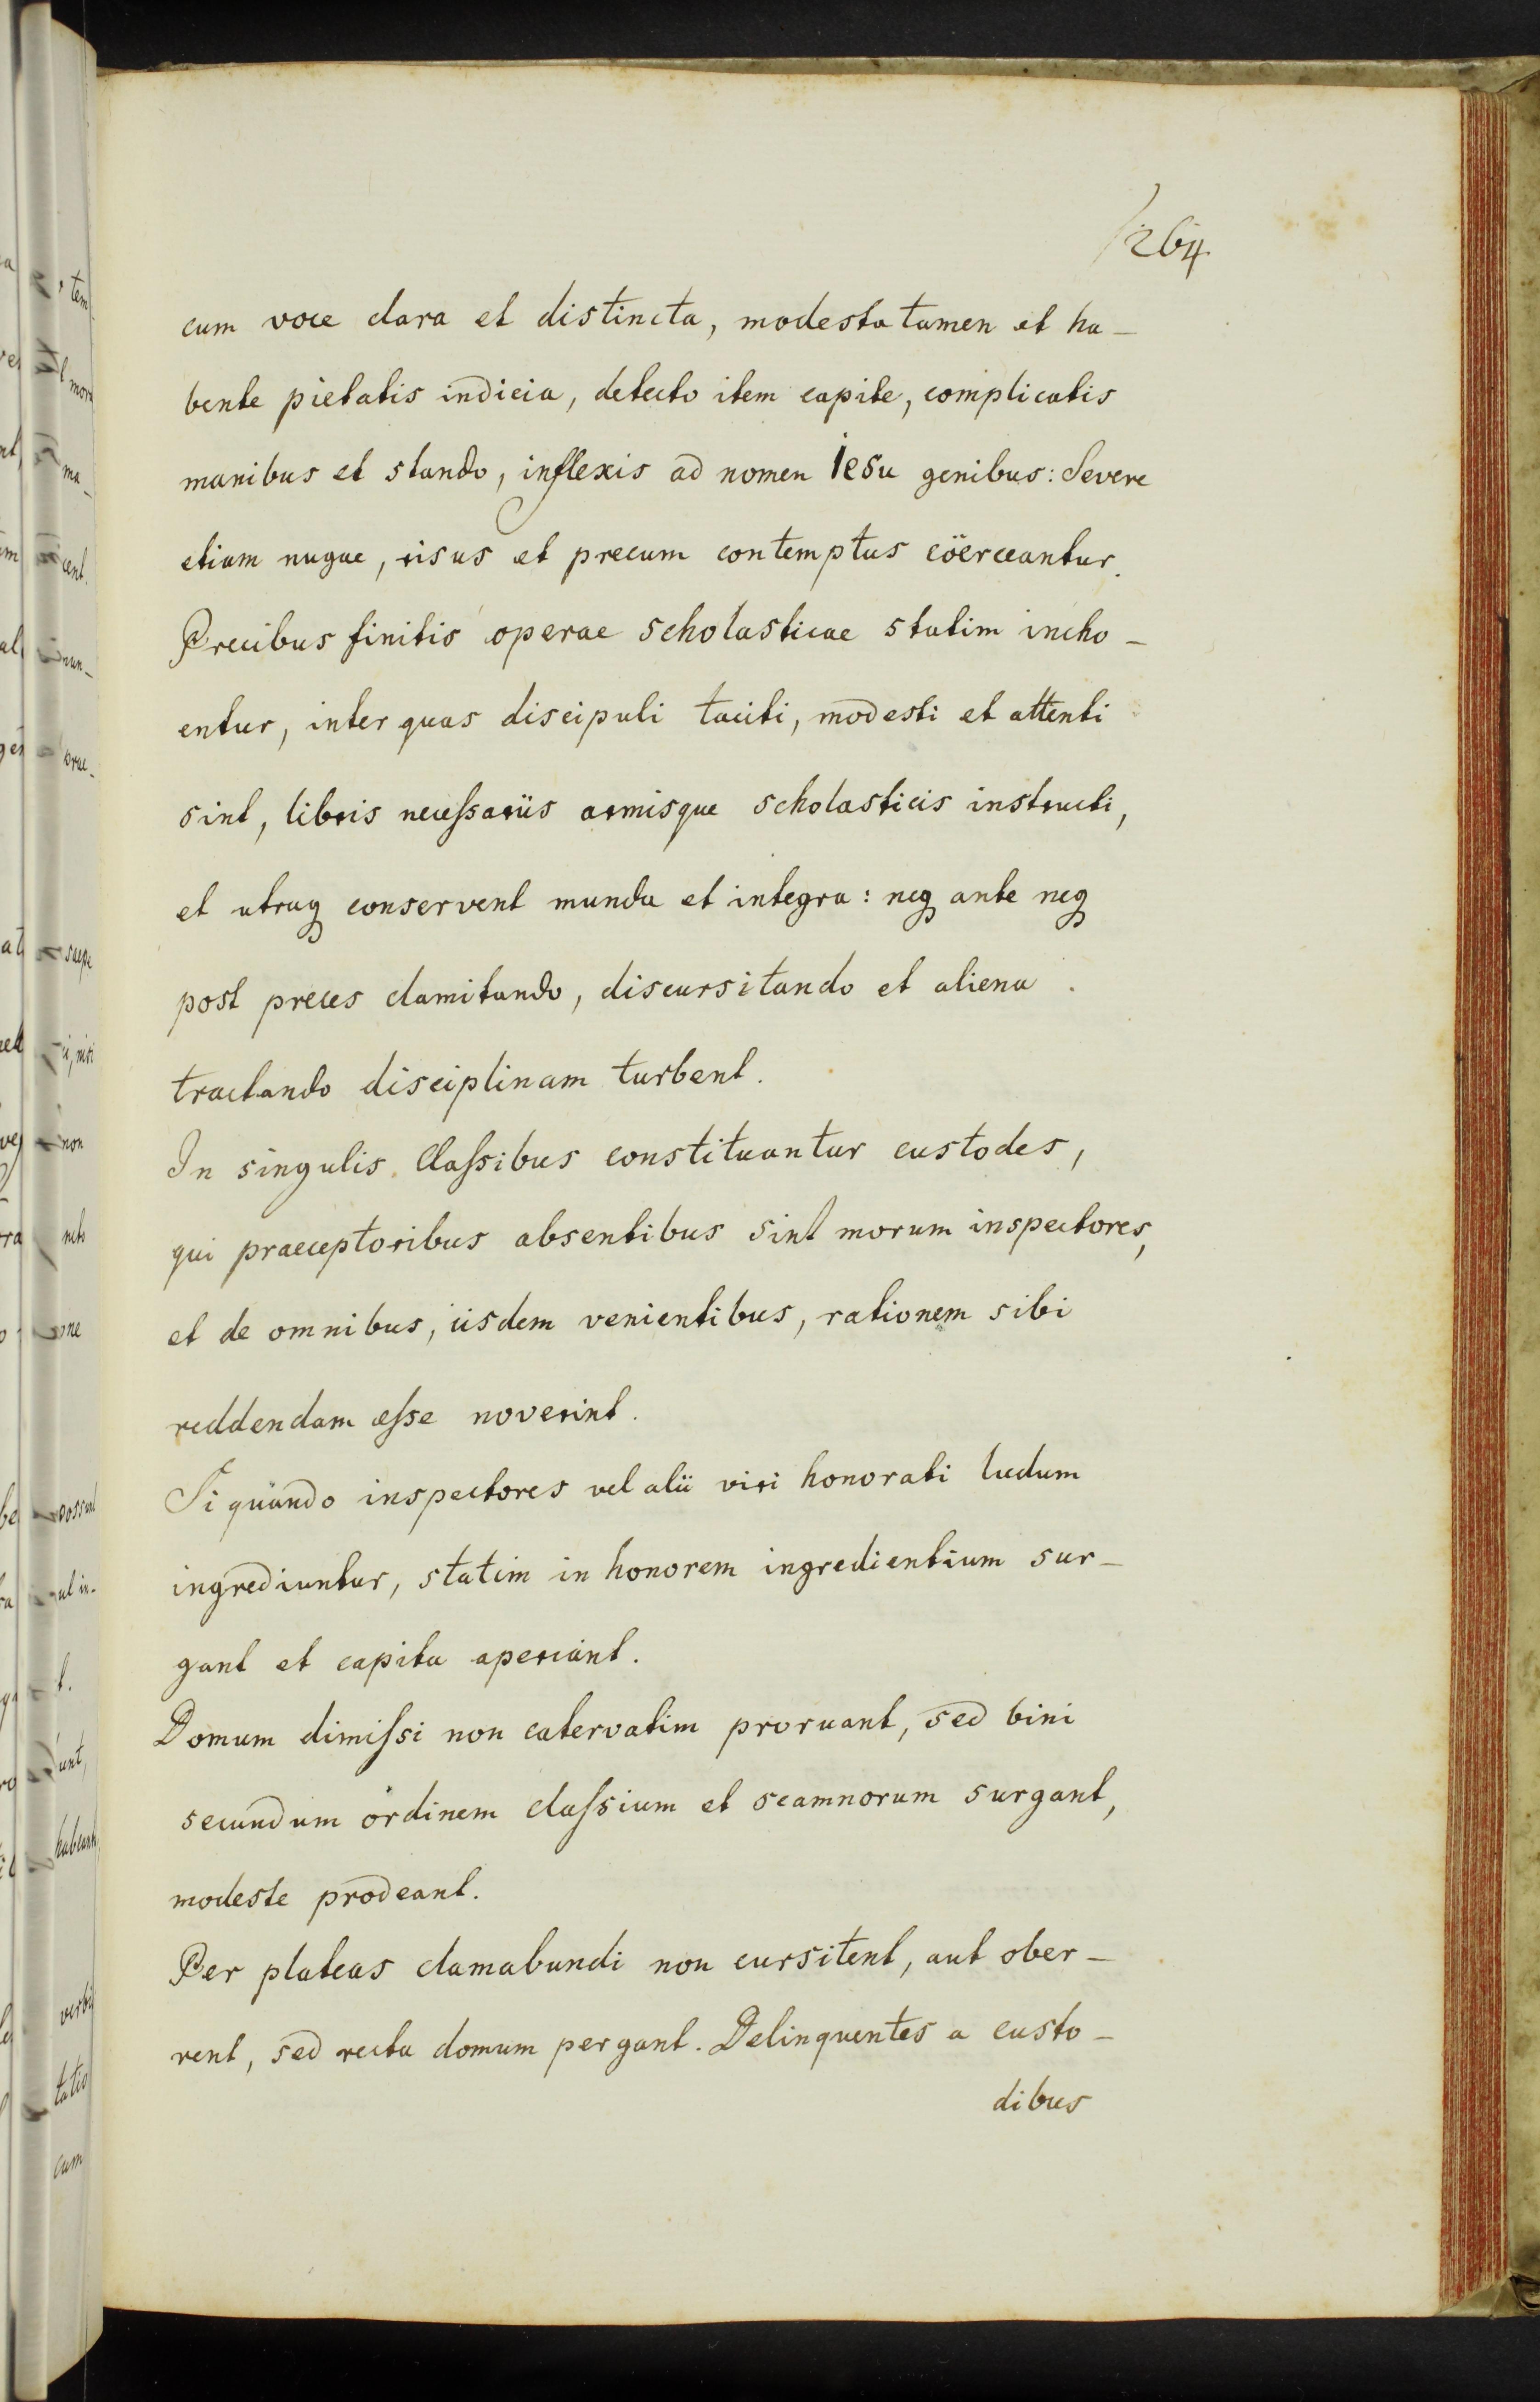 264
cum voce clara et distincta, modesta tamen et ha-
bente pietatis indicia, detecto item capite, complicatis
manibus et stando, inflexis ad nomen Iesu genibus: Severe
etiam nugae, risus et precum contemptus cöerceantur.
Precibus finitis operae scholasticae statim incho-
entur, inter quas discipuli taciti, modesti et attenti
sint, libris necessariis armisque scholasticis instructi,
et utraq conservent munda et integra: neq ante neq
post preces clamitando, discursitando et aliena
tractando disciplinam turbent.
In singulis Classibus constituantur custodes,
qui praeceptoribus absentibus sint morum inspectores,
et de omnibus, iisdem venientibus, rationem sibi
reddendam esse noverint.
Si quando inspectores vel alii viri honorati ludum
ingrediuntur, statim in honorem ingredientium sur-
gant et capita aperiant.
Domum dimissi non catervatim proruant, sed bini
secundum ordinem classium et scamnorum surgant,
modeste prodeant.
Per plateas clamabundi non cursitent, aut ober-
rent, sed recta domum pergant. Delinquentes a custo-
dibus